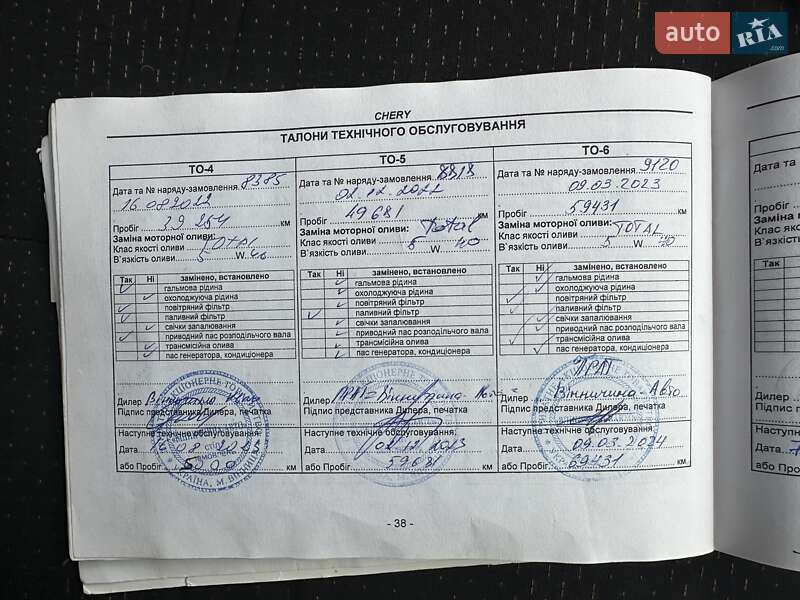 auto RIA .com
CHERY
ТАЛОНИ ТЕХНІЧНОГО ОБСЛУГОВУВАННЯ
ТО-4
Дата та № наряду-замовлення 8385
16.08.2022
Пробіг 39 254 км
Заміна моторної оливи:
Клас якості оливи TOTAL
В`язкість оливи 5 W 40
Так Ні замінено, встановлено
гальмова рідина
охолоджуюча рідина
повітряний фільтр
паливний фільтр
свічки запалювання
приводний пас розподільчого вала
трансмісійна олива
пас генератора, кондиціонера
Дилер
Підпис представника Дилера, печатка
Наступне технічне обслуговування
Дата
або Пробіг км
УКРАЇНА, М.ВІННИЦЯ
ТО-5
Дата та № наряду-замовлення 8818
02.12.2022
Пробіг 49681 км
Заміна моторної оливи:
Клас якості оливи Total
В`язкість оливи 5 W 40
Так Ні замінено, встановлено
гальмова рідина
охолоджуюча рідина
повітряний фільтр
паливний фільтр
свічки запалювання
приводний пас розподільчого вала
трансмісійна олива
пас генератора, кондиціонера
Дилер
Підпис представника Дилера, печатка
Наступне технічне обслуговування
Дата 02.12.2023
або Пробіг 59681 км
ТО-6
Дата та № наряду-замовлення 9120
09.03.2023
Пробіг 59431 км
Заміна моторної оливи:
Клас якості оливи TOTAL
В`язкість оливи 5 W 40
Так Ні замінено, встановлено
гальмова рідина
охолоджуюча рідина
повітряний фільтр
паливний фільтр
свічки запалювання
приводний пас розподільчого вала
трансмісійна олива
пас генератора, кондиціонера
Дилер Вінничина-Авто
Підпис представника Дилера, печатка
Наступне технічне обслуговування
Дата 09.03.2024
або Пробіг 69431 км
- 38 -
Дата та
Пробіг
Заміна м
Клас яко
В`язкість
Так
Дилер
Підпис
Наступ
Дата
або Про